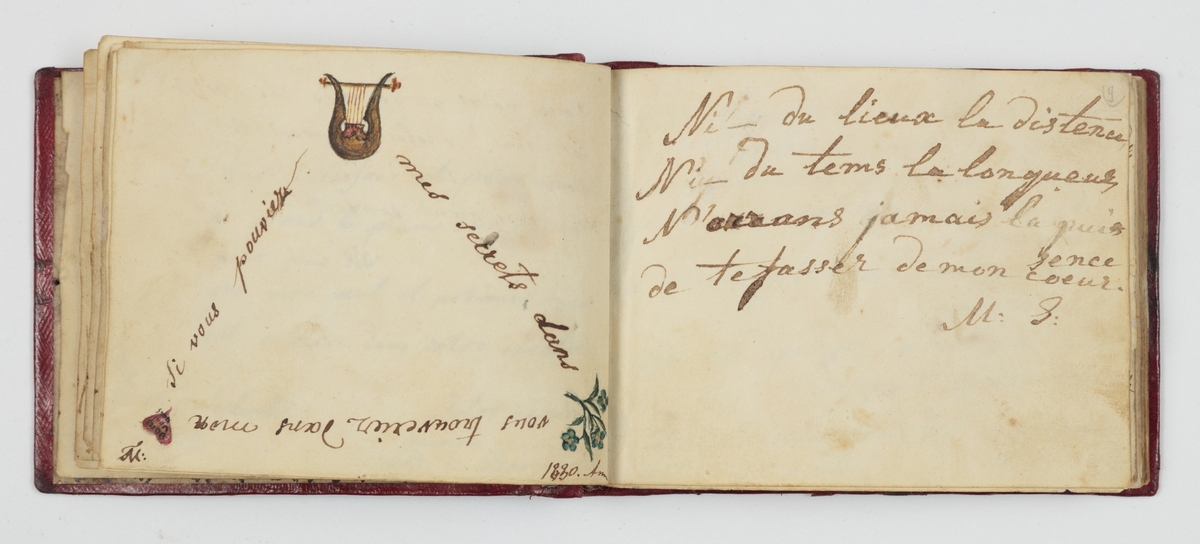 si vous pouviez
mes secrets dans
vous trouveriez dans mon
M:
1830. Am
9
Ni du lieux la distence
Ni du tems la longueur
N'orrans jamais la puis
sence
de tefasser de mon coeur.
M: S: